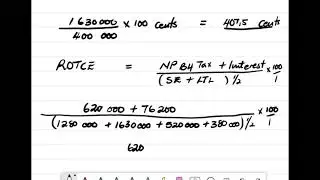 1630000 / 400 000 x 100 cents = 407,5 cents
ROTCE = NP B4 Tax + Interest / (SE + LTL) ½ x 100/1
620 000 + 76200 / (1280 000 + 1630000 + 520000 + 380000) ½ x 100/1
620